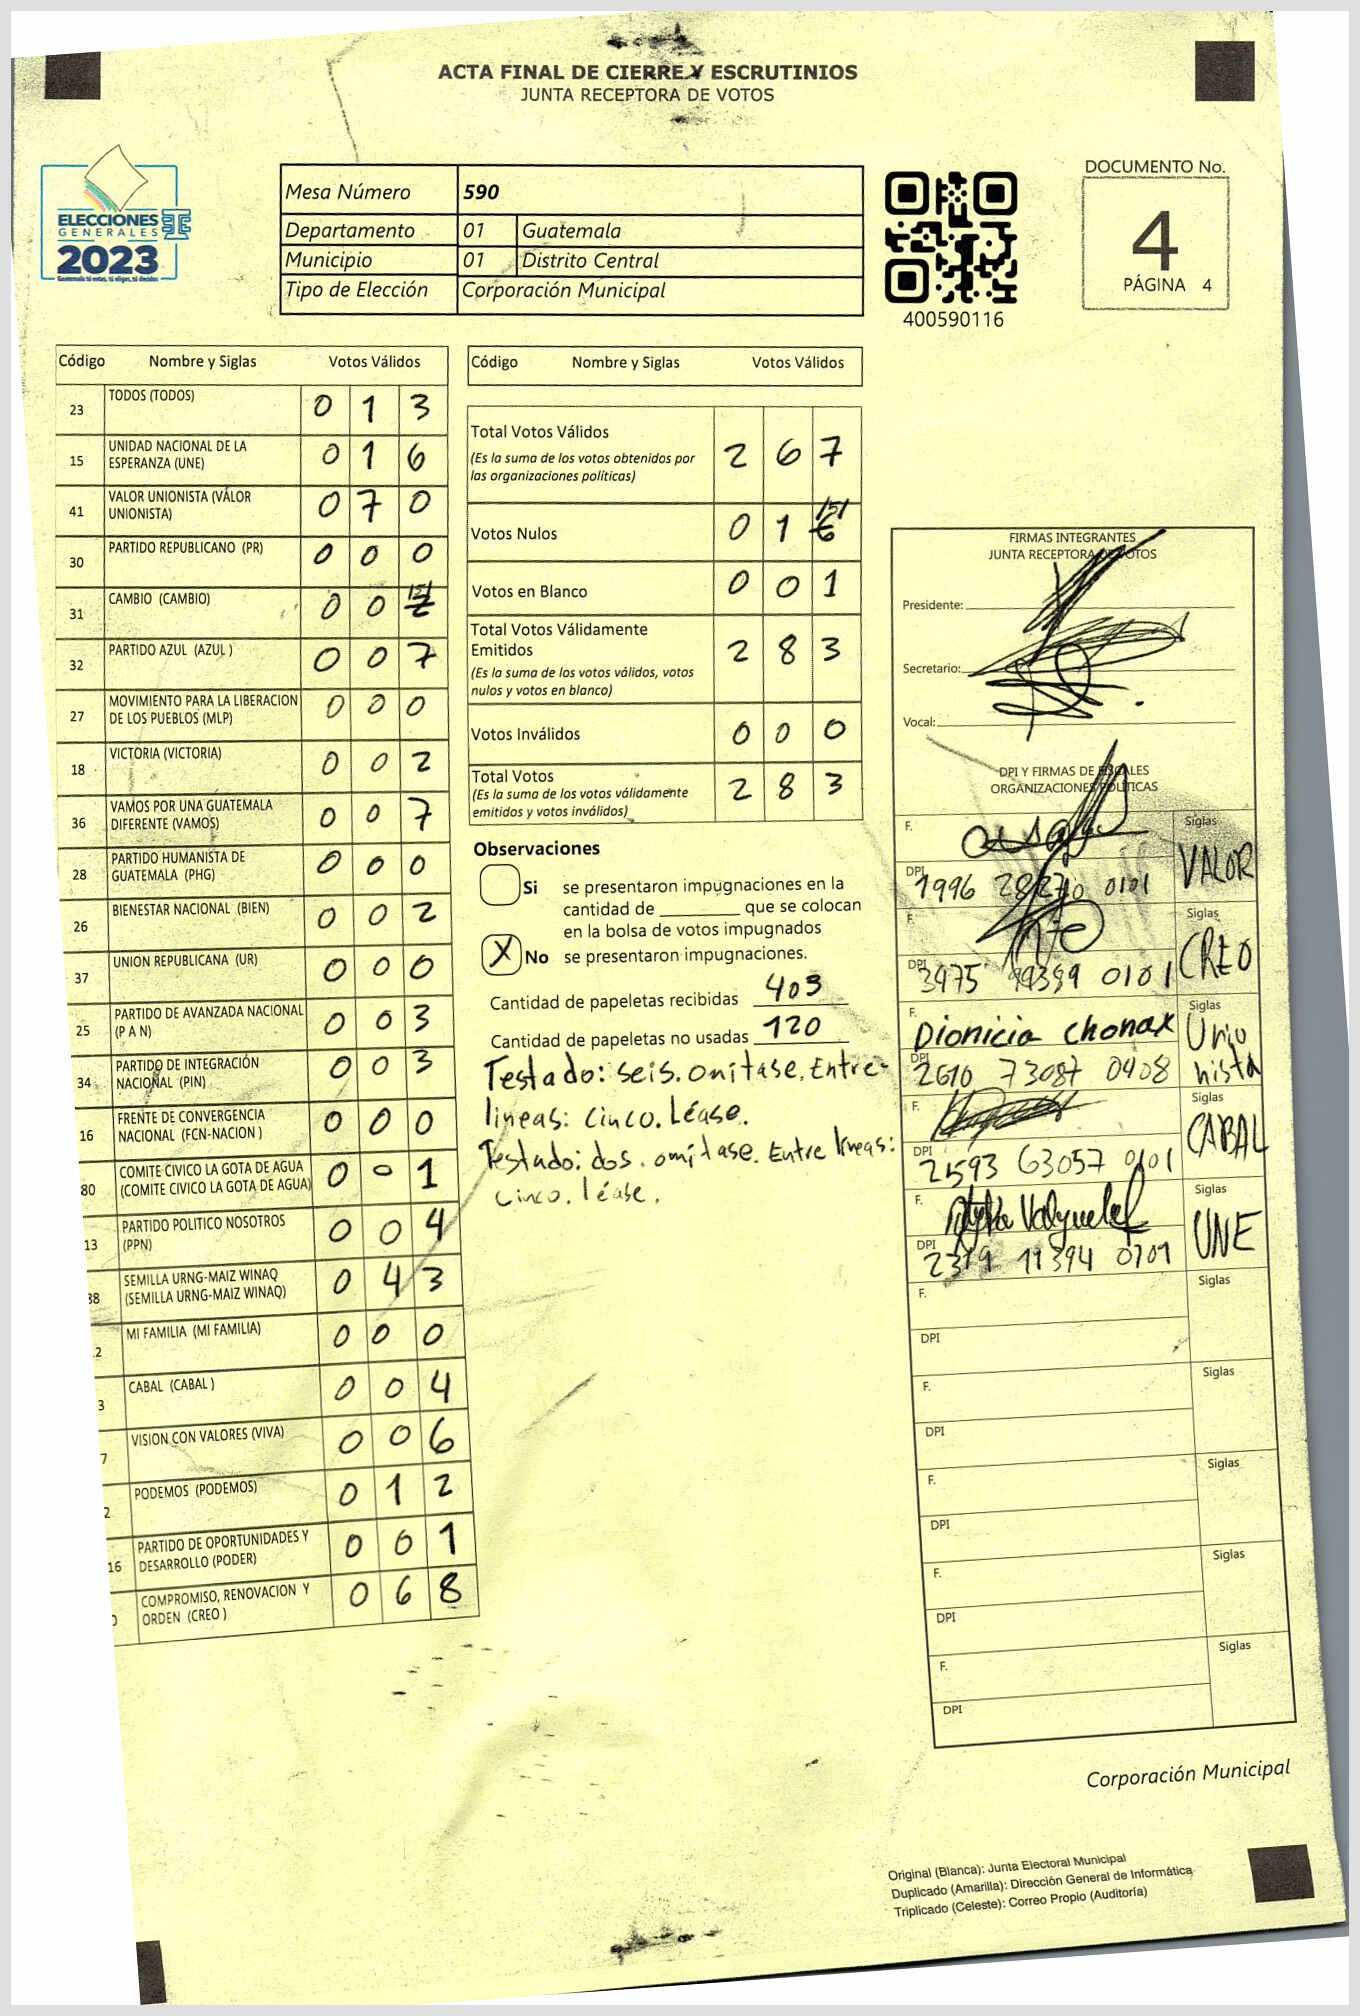 ACTA FINAL DE CIERRE Y ESCRUTINIOS
JUNTA RECEPTORA DE VOTOS
ELECCIONES
GENERALES
2023
Guatemala tú votas, tú eliges, tú decides
Mesa Número 590
Departamento 01 Guatemala
Municipio 01 Distrito Central
Tipo de Elección Corporación Municipal
400590116
DOCUMENTO No.
4
PÁGINA 4
Código Nombre y Siglas Votos Válidos
23 TODOS (TODOS) 0 1 3
15 UNIDAD NACIONAL DE LA ESPERANZA (UNE) 0 1 6
41 VALOR UNIONISTA (VALOR UNIONISTA) 0 7 0
30 PARTIDO REPUBLICANO (PR) 0 0 0
31 CAMBIO (CAMBIO) 0 0 2 /5/
32 PARTIDO AZUL (AZUL ) 0 0 7
27 MOVIMIENTO PARA LA LIBERACION DE LOS PUEBLOS (MLP) 0 0 0
18 VICTORIA (VICTORIA) 0 0 2
36 VAMOS POR UNA GUATEMALA DIFERENTE (VAMOS) 0 0 7
28 PARTIDO HUMANISTA DE GUATEMALA (PHG) 0 0 0
26 BIENESTAR NACIONAL (BIEN) 0 0 2
37 UNION REPUBLICANA (UR) 0 0 0
25 PARTIDO DE AVANZADA NACIONAL (P A N) 0 0 3
34 PARTIDO DE INTEGRACIÓN NACIONAL (PIN) 0 0 3
16 FRENTE DE CONVERGENCIA NACIONAL (FCN-NACION ) 0 0 0
80 COMITE CIVICO LA GOTA DE AGUA (COMITE CIVICO LA GOTA DE AGUA) 0 0 1
13 PARTIDO POLITICO NOSOTROS (PPN) 0 0 4
38 SEMILLA URNG-MAIZ WINAQ (SEMILLA URNG-MAIZ WINAQ) 0 4 3
2 MI FAMILIA (MI FAMILIA) 0 0 0
3 CABAL (CABAL ) 0 0 4
7 VISION CON VALORES (VIVA) 0 0 6
2 PODEMOS (PODEMOS) 0 1 2
16 PARTIDO DE OPORTUNIDADES Y DESARROLLO (PODER) 0 0 1
COMPROMISO, RENOVACION Y ORDEN (CREO ) 0 6 8
Código Nombre y Siglas Votos Válidos
Total Votos Válidos 2 6 7
(Es la suma de los votos obtenidos por
las organizaciones políticas)
Votos Nulos 0 1 6 /5/
Votos en Blanco 0 0 1
Total Votos Válidamente
Emitidos 2 8 3
(Es la suma de los votos válidos, votos
nulos y votos en blanco)
Votos Inválidos 0 0 0
Total Votos 2 8 3
(Es la suma de los votos válidamente
emitidos y votos inválidos)
Observaciones
Si se presentaron impugnaciones en la
cantidad de ________ que se colocan
en la bolsa de votos impugnados
X No se presentaron impugnaciones.
Cantidad de papeletas recibidas 403
Cantidad de papeletas no usadas 120
Testado: seis. omítase. Entre-
líneas: cinco. Léase.
Testado: dos. omítase. Entre líneas:
cinco. léase.
FIRMAS INTEGRANTES
JUNTA RECEPTORA DE VOTOS
Presidente:
Secretario:
Vocal:
DPI Y FIRMAS DE FISCALES
ORGANIZACIONES POLÍTICAS
F. Siglas
VALOR
DPI 1996 0101
F. Siglas
CREO
DPI 3475 99399 0101
F. Dionicia Chonax Siglas
Unio
nista
DPI 2610 73087 0408
F. Siglas
CABAL
DPI 21593 63057 0101
F. Siglas
UNE
DPI 2319 11394 0101
F. Siglas
DPI
F. Siglas
DPI
F. Siglas
DPI
F. Siglas
DPI
F. Siglas
DPI
Corporación Municipal
Original (Blanca): Junta Electoral Municipal
Duplicado (Amarilla): Dirección General de Informática
Triplicado (Celeste): Correo Propio (Auditoría)